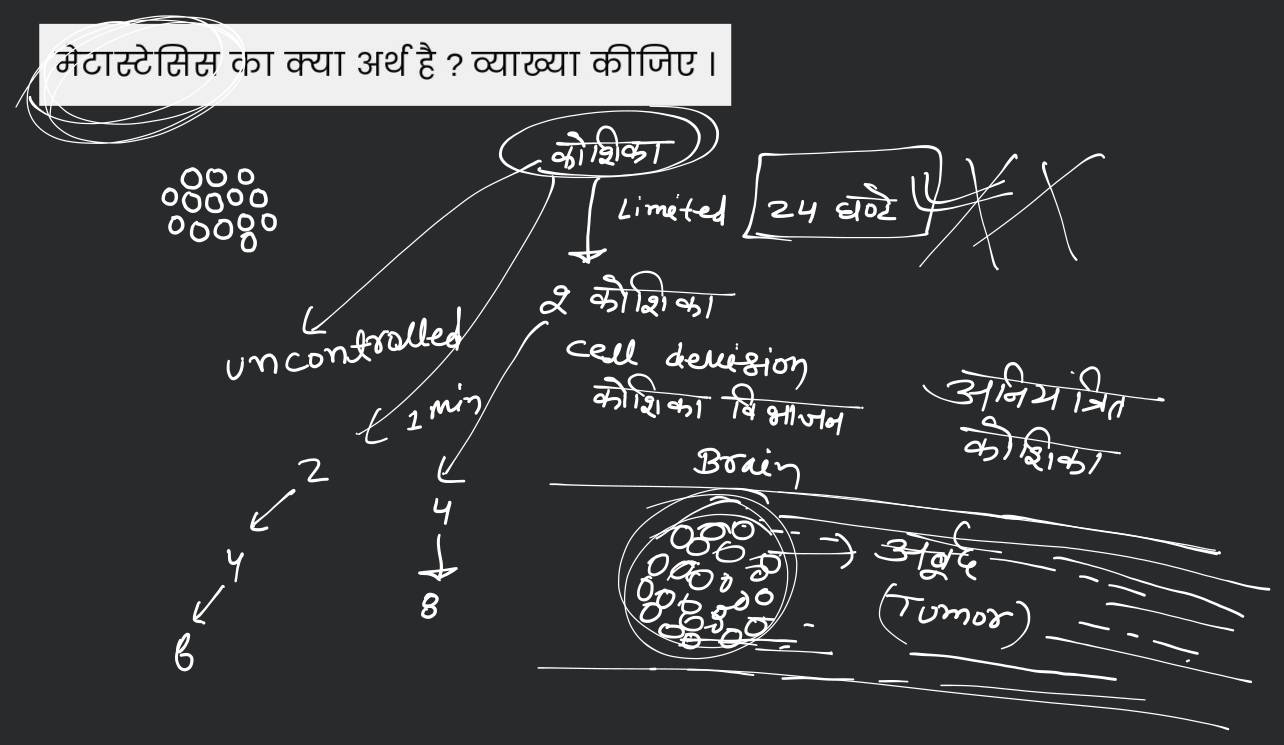 मेटास्टेसिस का क्या अर्थ है ? व्याख्या कीजिए ।
कोशिका
Limited
24 घण्टे
2 कोशिका
uncontrolled
cell devision
कोशिका विभाजन
1 min
अनियंत्रित
कोशिका
Brain
2
4
4
8
8
अर्बुद
(Tumor)